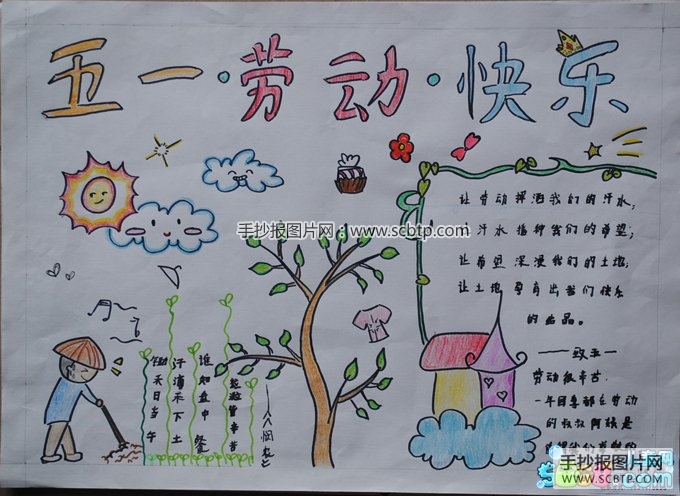 五一·劳动·快乐
让劳动挥洒我们的汗水,
汗水播种我们的希望;
手抄报图片网.com
www.scbtp.com
让希望我们的土地;
让土地孕育出我们快乐
的品。
——致五一
劳动很辛苦,
一年四季都在劳动
的叔叔阿姨是
锄禾日当午
汗滴禾下土
谁知盘中餐
粒粒皆辛苦
——《悯农》
手抄报图片网
WWW.SCBTP.COM